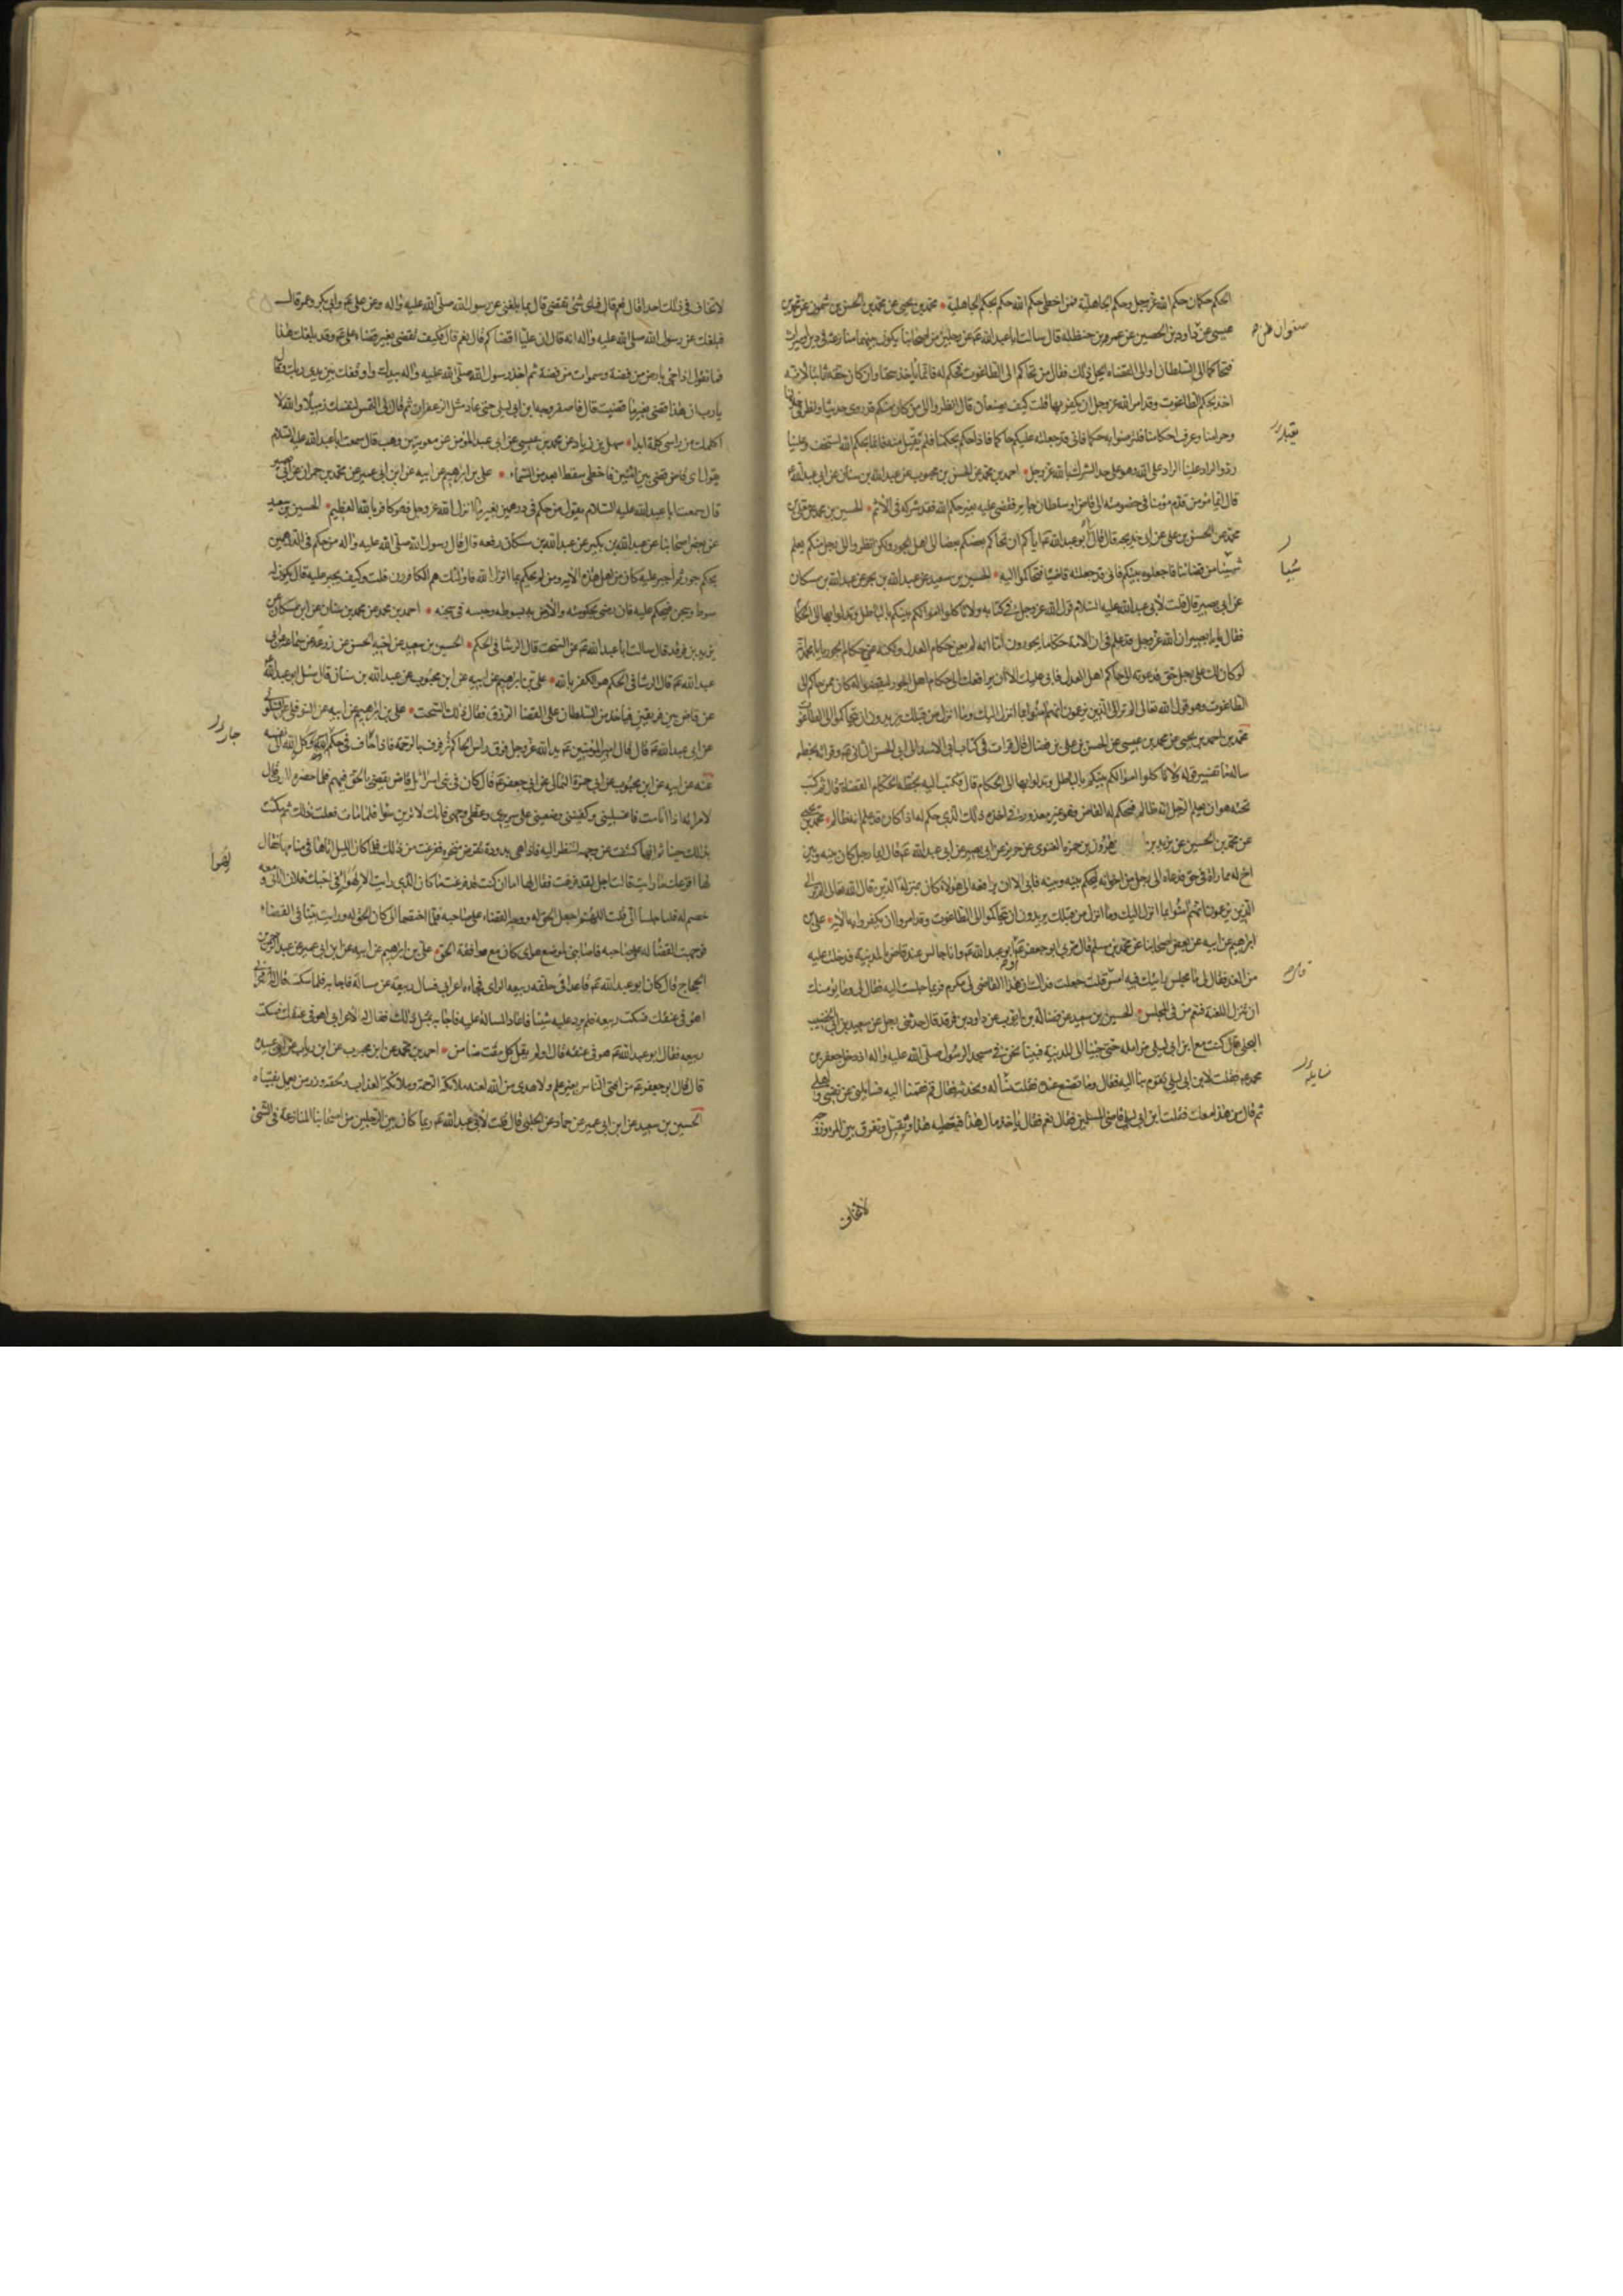 الحكم حكمان حكم الله عز وجل وحكم الجاهلية فمن اخطى حكم الله حكم بحكم الجاهلية محمد بن يحيى عن محمد بن الحسن بن شمون عن محمد بن
عيسى عن داود بن الحصين عن عمر بن حنظلة قال سالت ابا عبدالله ع عن رجلين من اصحابنا يكون بينهما منازعة في دين او ميراث
صفوان
فتحاكما الى السلطان او الى القضاء ايحل ذلك فقال من تحاكم الى الطاغوت فحكم له فانما ياخذ سحتا وان كان حقه ثابتا لانه
اخذ بحكم الطاغوت وقد امر الله عز وجل ان يكفر بها قلت كيف يصنعان قال انظروا الى من كان منكم قد روى حديثنا ونظر في حلالنا
وحرامنا وعرف احكامنا فلترضوا به حكما فانى قد جعلته عليكم حاكما فاذا حكم بحكمنا فلم يقبل منه فانما بحكم الله استخف وعلينا
رد والراد علينا الراد على الله وهو على حد الشرك بالله عز وجل احمد بن محمد عن الحسن بن محبوب عن عبد الله بن سنان عن ابى عبد الله
قال ايما مومن قدم مومنا في خصومة الى قاض او سلطان جاير فقضى عليه بغير حكم الله فقد شركه فى الاثم الحسين بن محمد عن معلى بن
محمد عن الحسن بن على عن ابى خديجه قال قال ابو عبد الله ع اياكم ان يحاكم بعضكم بعضا الى اهل الجور ولكن انظروا الى رجل منكم يعلم
شيئا من قضائنا فاجعلوه بينكم فانى قد جعلته قاضيا فتحاكموا اليه الحسين بن سعيد عن عبد الله بن بحر عن عبد الله بن مسكان
شيئا
عن ابى بصير قال قلت لأبى عبد الله عليه السلام قول الله عز وجل فى كتابه ولا تاكلوا اموالكم بينكم بالباطل وتدلوا بها الى الحكام
فقال يا ابا بصير ان الله عز وجل قد علم فى ان الامة حكاما يجورون اما انه لم يعن حكام العدل ولكنه عنى حكام الجور يا ابا محمد
لو كان لك على رجل حق فدعوته الى حاكم اهل العدل فابى عليك الا ان يرافعك الى حكام اهل الجور ليقضوا له كان ممن حاكم الى
الطاغوت وهو قول الله تعالى الم تر الى الذين يزعمون انهم امنوا بما انزل اليك وما انزل من قبلك يريدون ان يتحاكموا الى الطاغوت
محمد بن احمد بن يحيى عن محمد بن عيسى عن الحسن بن على بن فضال قال قرات فى كتاب ابى الاسد الى ابى الحسن الثانى ع وقراته بخطه
ساله ما تفسير قوله ولا تاكلوا اموالكم بينكم بالباطل وتدلوا بها الى الحكام قال فكتب اليه بخطه الحكام القضاة قال ثم كتب
تحته هو ان يعلم الرجل انه ظالم فحكم له القاضى فهو غير معذور فى اخذه ذلك الذى حكم له اذا كان قد علم انه ظالم محمد بن يحيى
عن محمد بن الحسين عن يزيد بن هرون بن حمزه الغنوى عن حريز عن ابى بصير عن ابى عبد الله ع قال ايما رجل كان بينه وبين
اخ له مماراة فى حق فدعاه الى رجل من اخوانه ليحكم بينه وبينه فابى الا ان يرافعه الى هؤلاء كان بمنزلة الذين قال الله تعالى الم تر الى
الذين يزعمون انهم امنوا بما انزل اليك وما انزل من قبلك يريدون ان يتحاكموا الى الطاغوت وقد امروا ان يكفروا به الاية على بن
ابراهيم عن ابيه عن بعض اصحابنا عن محمد بن مسلم قال مر بى ابو جعفر ع او ابو عبد الله ع وانا جالس عند قاض بالمدينة فدخلت عليه
من الغد فقال لى ما مجلس رايتك فيه امس قلت جعلت فداك ان هذا القاضى لى مكرم فربما جلست اليه فقال لى وما يومنك
ان تنزل اللعنة فتعم من فى المجلس الحسين بن سعيد عن فضالة بن ايوب عن داود بن فرقد قال حدثنى رجل عن سعيد بن ابى الخضيب
البجلى قال كنت مع ابن ابى ليلى مزامله حتى جئنا الى المدينة فبينا نحن فى مسجد الرسول صلى الله عليه واله اذ دخل جعفر بن
محمد ع فقلت لابن ابى ليلى تقوم بنا اليه فقال وما نصنع عنده فقلت نسأله ونحدثه فقال قم فقمنا اليه فسايلنى عن نفسى واهلى
ثم قال من هذا معك فقلت ابن ابى ليلى قاضى المسلمين فقال نعم فقال تاخذ مال هذا فتعطيه هذا وتقتل وتفرق بين المرء وزوجه
لا تخاف
لا تخاف فى ذلك احدا قال نعم قال فباى شئ تقضى قال بما بلغنى عن رسول الله صلى الله عليه واله وعن على ع وابى بكر وعمر قال
فبلغك عن رسول الله صلى الله عليه واله انه قال ان عليا اقضاكم قال نعم قال فكيف تقضى بغير قضاء على ع وقد بلغك هذا
فما تقول اذا جئ بارض من فضة وسموات من فضة ثم اخذ رسول الله صلى الله عليه واله بيدك واوقفك بين يدى ربك وقال
يا رب ان هذا قضى بغير ما قضيت قال فاصفر وجه ابن ابى ليلى حتى عاد مثل الزعفران ثم قال لى التمس لنفسك زميلا والله لا
اكلمك من راسى كلمة ابدا سهل بن زياد عن محمد بن عيسى عن ابى عبد الله المؤمن عن معوية بن وهب قال سمعت ابا عبد الله عليه السلام
يقول اى قاض قضى بين اثنين فاخطى سقط ابعد من السماء على بن ابراهيم عن ابيه عن ابن ابى عمير عن محمد بن حمران عن ابى بصير
قال سمعت ابا عبد الله عليه السلام يقول من حكم فى درهمين بغير ما انزل الله عز وجل فهو كافر بالله العظيم الحسين بن سعيد
عن بعض اصحابنا عن عبد الله بن بكير عن عبد الله بن مسكان رفعه قال قال رسول الله صلى الله عليه واله من حكم فى الدرهمين
بحكم جور ثم اجبر عليه كان من اهل هذه الاية ومن لم يحكم بما انزل الله فاولئك هم الكافرون قلت وكيف يجبر عليه قال يكون له
سوط وسجن فيحكم عليه فان رضى بحكومته والا ضربه بسوطه وحبسه فى سجنه احمد بن محمد عن محمد بن سنان عن ابن مسكان عن
يزيد بن فرقد قال سالت ابا عبد الله ع عن السحت قال الرشا فى الحكم الحسين بن سعيد عن اخيه الحسن عن زرعة عن سماعة عن ابى
عبد الله ع قال الرشا فى الحكم هو الكفر بالله على بن ابراهيم عن ابيه عن ابن محبوب عن عبد الله بن سنان قال سئل ابو عبد الله ع
عن قاض بين فريقين فياخذ من السلطان على القضا الرزق فقال ذلك السحت على بن ابراهيم عن ابيه عن النوفلى عن السكونى
عن ابى عبد الله ع قال قال امير المؤمنين ع يد الله عز وجل فوق راس الحاكم ترفرف بالرحمة فاذا حاف فى حكمه وكل الله الى نفسه
عنه عن ابيه عن ابن محبوب عن ابى حمزة الثمالى عن ابى جعفر ع قال كان فى بنى اسرائيل قاض يقضى بالحق فيهم فلما حضره الموت قال
لامراته اذا انا مت فاغسلينى وكفنينى وضعينى على سريرى وغطى وجهى فانك لا ترين سوا فلما مات فعلت ذلك ثم مكث
بذلك حينا ثم انها كشفت عن وجهه لتنظر اليه فاذا هى بدودة تقرض منخره ففزعت من ذلك فلما كان الليل اتاها فى منامها فقال
لها افزعك ما رايت قالت اجل لقد فزعت فقال لها اما ان كنت فزعت ما كان الذى رايت الا لهواى فى اخيك فلان اتانى ومعه
خصم له فلما جلسا الى قلت اللهم اجعل الحق له ووجه القضاء على صاحبه فلما اختصما الى كان الحق له ورايت بينا فى القضاء
فوجهت القضا له على صاحبه فاصابنى لموضع هواى كان مع موافقة الحق على بن ابراهيم عن ابيه عن ابن ابى عمير عن عبد الرحمن بن
الحجاج قال كان ابو عبد الله ع قاعدا فى حلقة ربيعه الراى فجاء اعرابى فسال ربيعه عن مسالة فاجابه فلما سكت قال له الاعرابى
اهو فى عنقك فسكت ربيعه فلم يرد عليه شيئا فاعاد المساله عليه فاجابه بمثل ذلك فقال له الاعرابى اهو فى عنقك فسكت
ربيعه فقال ابو عبد الله ع هو فى عنقه قال او لم يقل كل مفت ضامن احمد بن محمد عن ابن محبوب عن ابن رياب عن ابى عبيده
قال قال ابو جعفر ع من افتى الناس بغير علم ولا هدى من الله لعنه ملائكة الرحمة وملائكة العذاب ولحقه وزر من عمل بفتياه
الحسين بن سعيد عن ابن ابى عمير عن حماد عن الحلبى قال قلت لأبى عبد الله ع ربما كان بين الرجلين من اصحابنا المنازعة فى الشئ